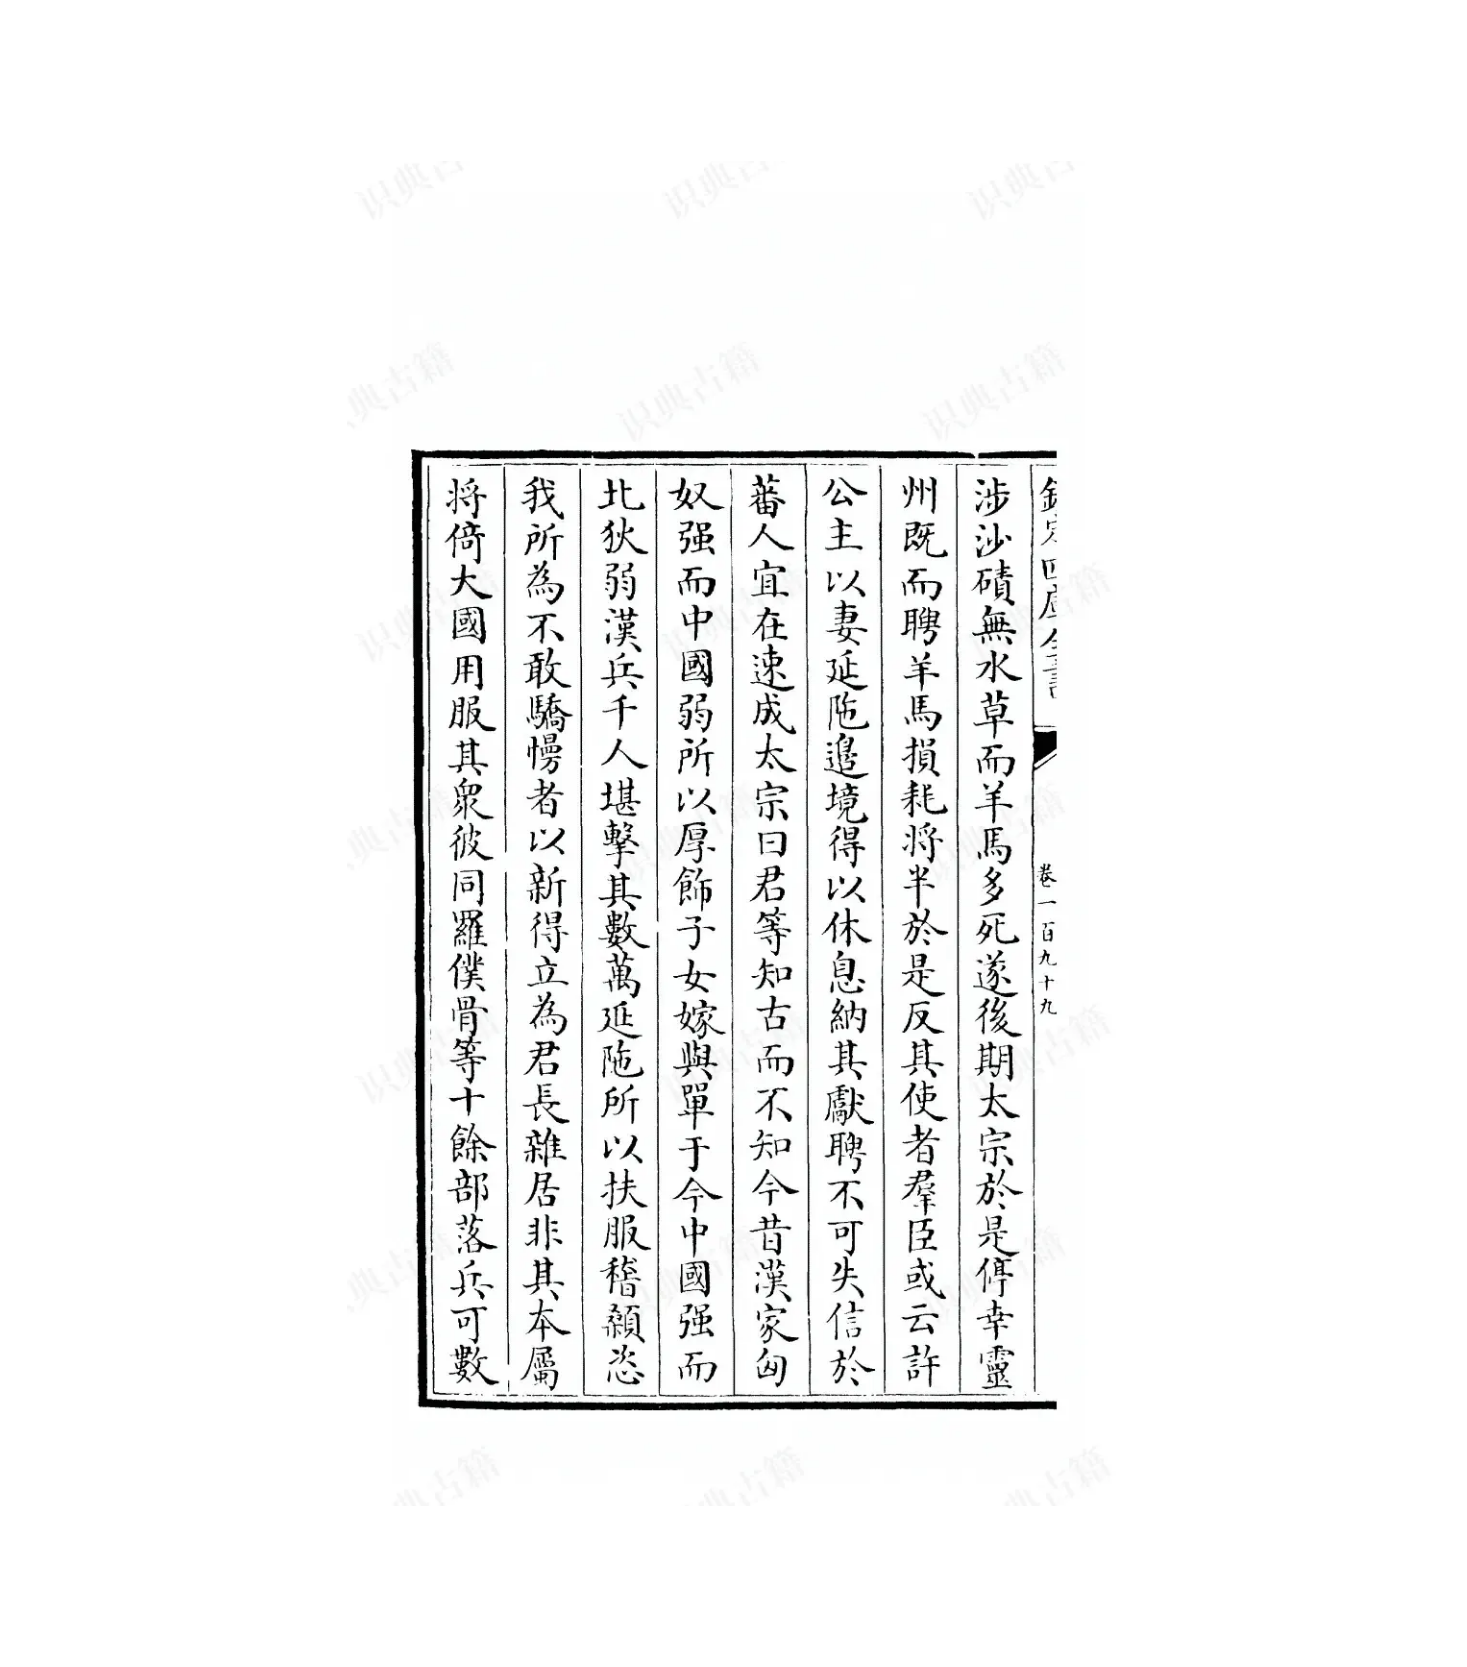 欽定四庫全書 卷一百九十九
涉沙磧無水草而羊馬多死遂後期太宗於是停幸靈
州既而聘羊馬損耗將半於是反其使者羣臣或云許
公主以妻延陁邉境得以休息納其獻聘不可失信於
蕃人宜在速成太宗曰君等知古而不知今昔漢家匈
奴强而中國弱所以厚飾子女嫁與單于今中國强而
北狄弱漢兵千人堪擊其數萬延陁所以扶服稽顙恣
我所為不敢驕慢者以新得立為君長雜居非其本屬
將倚大國用服其衆彼同羅僕骨等十餘部落兵可數
识典古籍